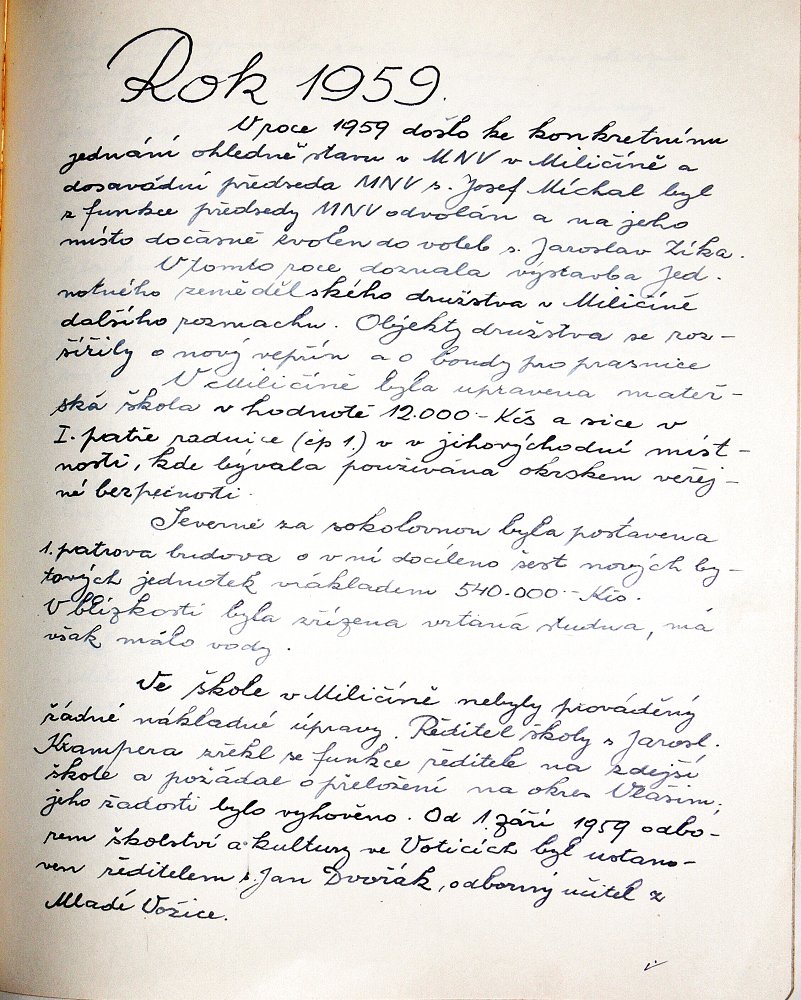 Rok 1959.
V roce 1959 došlo ke konkretnímu
jednání ohledně stavu v MNV v Miličíně a
dosavádní předseda MNV s. Josef Míchal byl
z funkce předsedy MNV odvolán a na jeho
místo dočasně zvolen do voleb s. Jaroslav Zíka.
V tomto roce doznala výstavba Jed-
notného zemědělského družstva v Miličíně
dalšího rozmachu. Objekty družstva se roz-
šířily o nový vepřín a o boudy pro prasnice
V Miličíně byla upravena mateř-
ská škola v hodnotě 12.000 - Kčs a sice v
I. patře radnice (čp 1.) v v jihovýchodní míst-
nosti, kde bývala používána okrskem veřej-
né bezpečnosti.
Severně za sokolovnou byla postavena
1. patrová budova o v ní docíleno šest nových by-
tových jednotek v nákladem 540.000.- Kčs.
V blízkosti byla zřízena vrtaná studna, má
však málo vody.
Ve škole v Miličíně nebyly prováděný
žádné nákladné úpravy. Ředitel školy s Jarosl.
Krampera zřekl se funkce ředitele na zdejší
škole a požádal o přeložení na okres Vlašim,
jeho žádosti bylo vyhověno. Od 1. září 1959 odbo-
rem školství a kultury ve Voticích byl ustano-
ven ředitelem s. Jan Dvořák, odborný učitel z
Mladé Vožice.